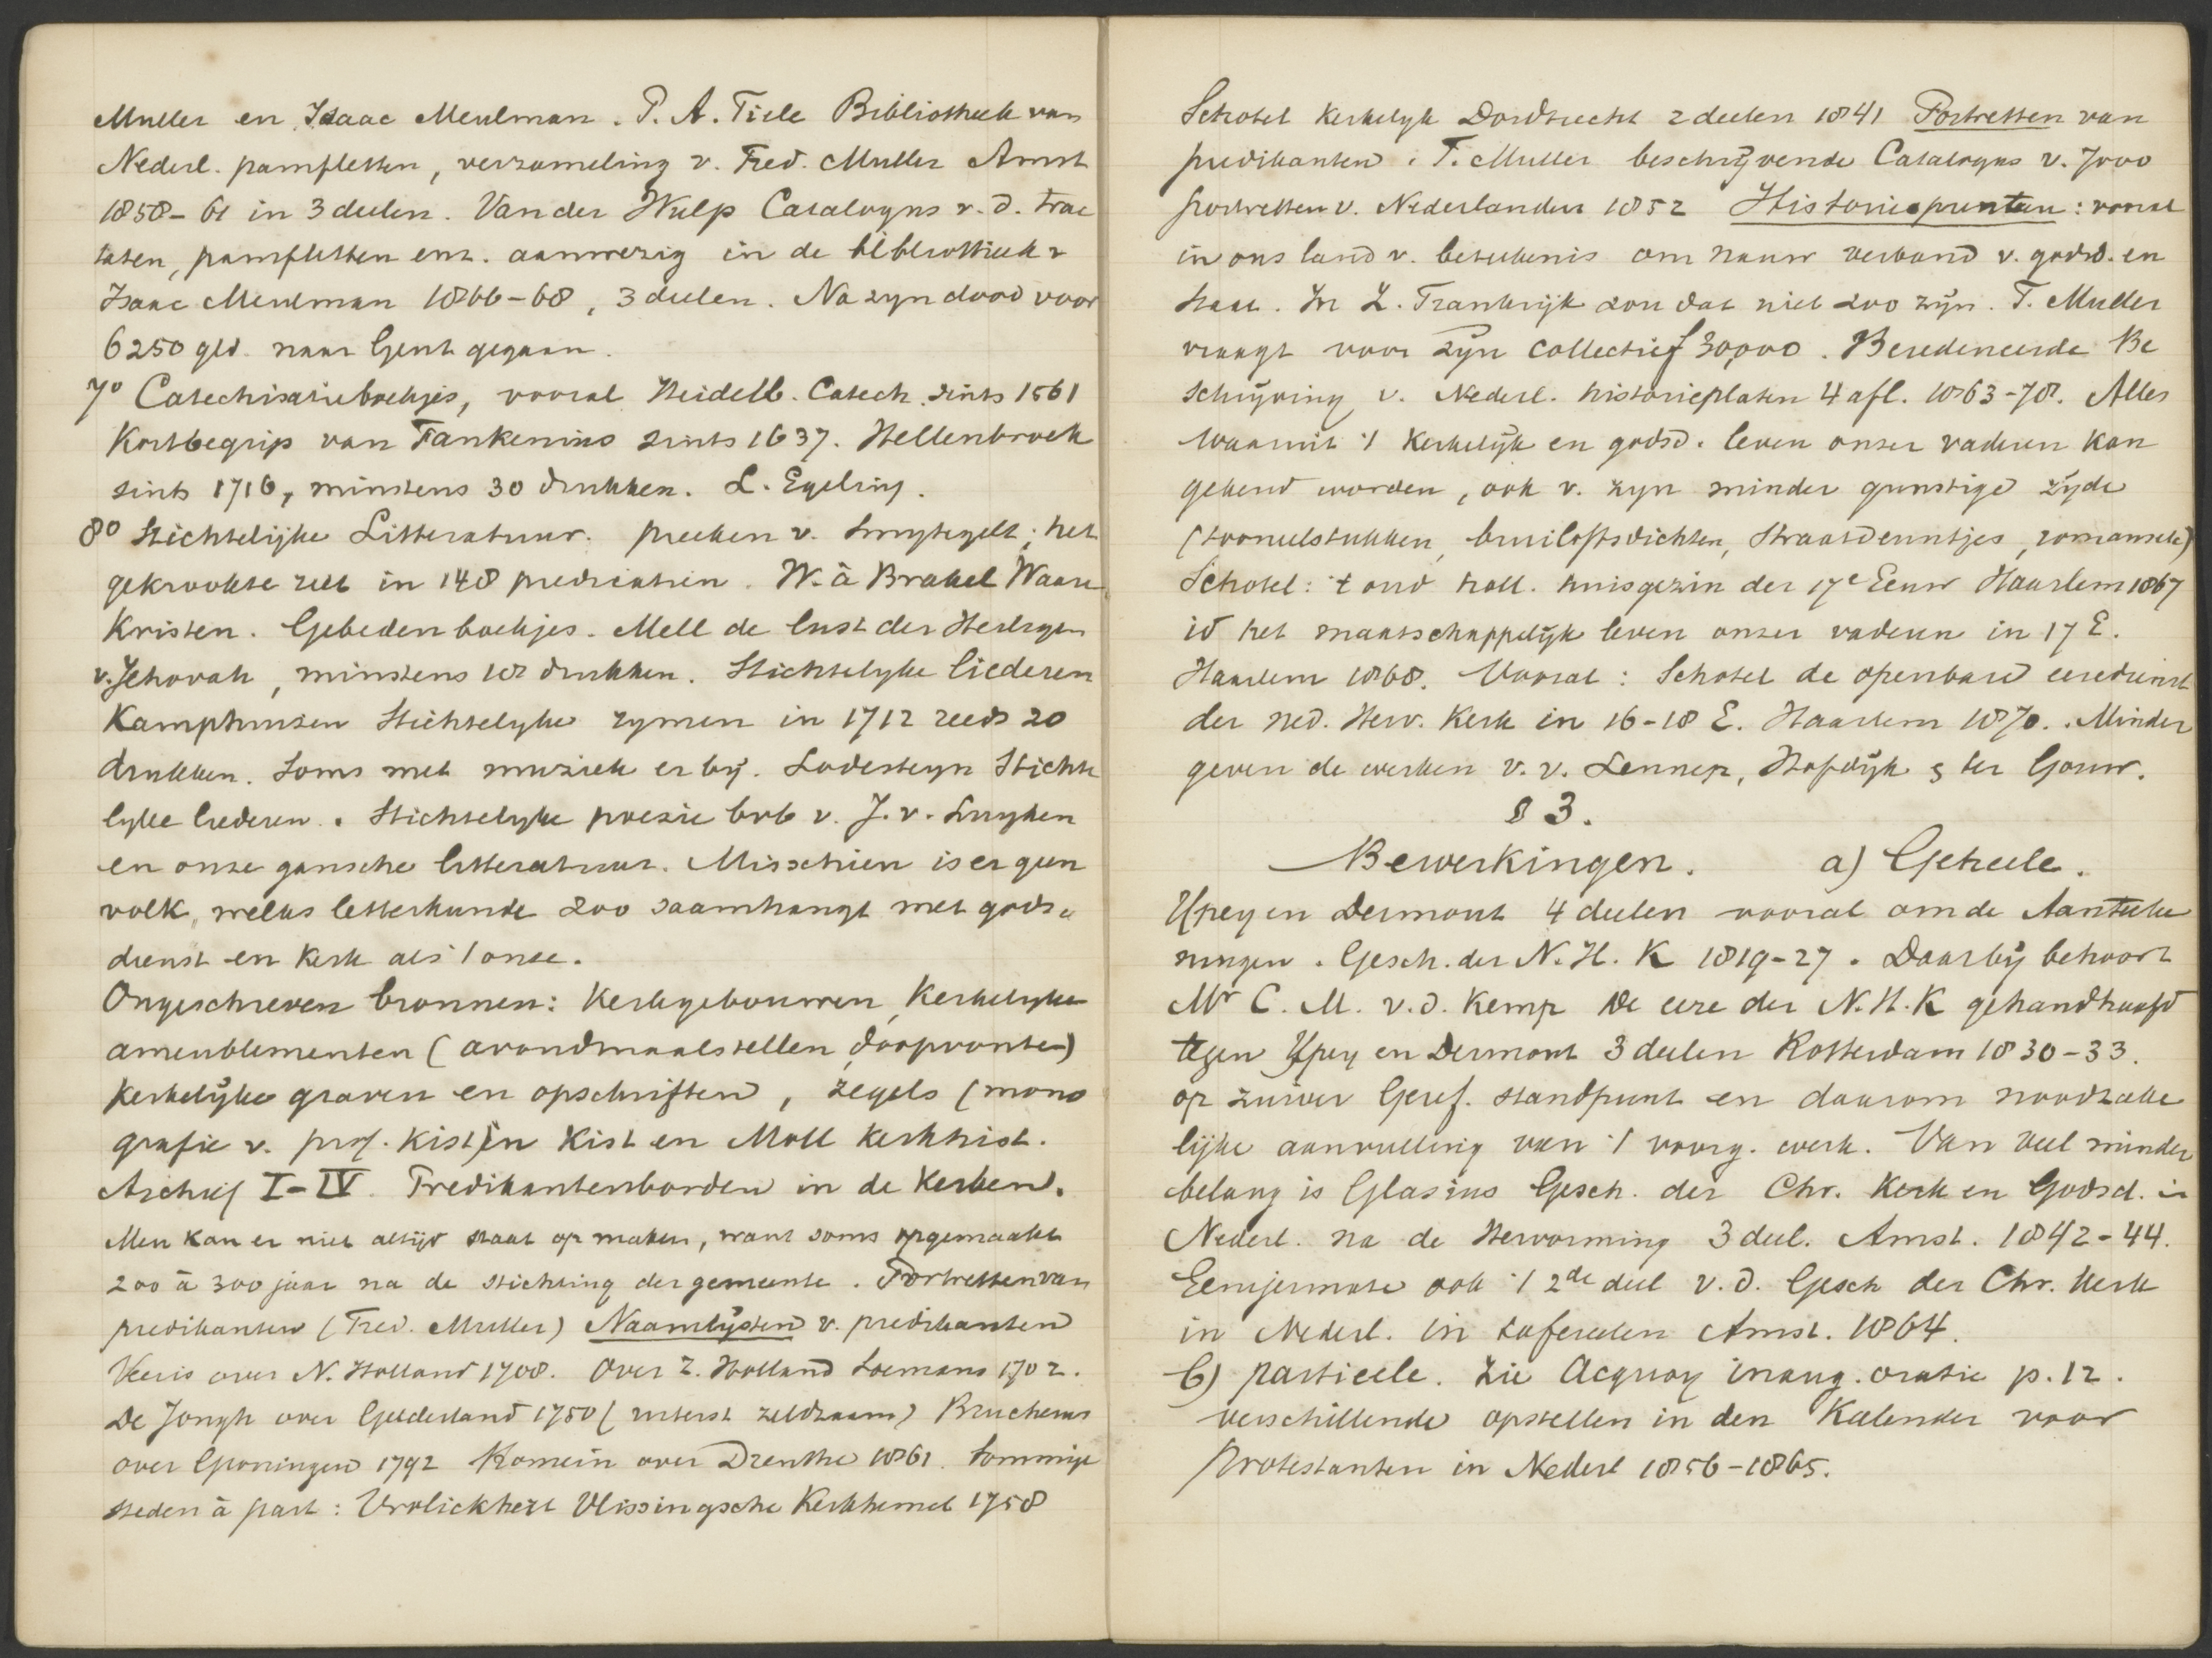 Muller en Isaac Meulman. P. A. Tiele Bibliotheek van
Nederl. pamfletten, verzameling v. Fred. Muller Amst
1858-61 in 3 deelen. Van der Wulp Catalogus v. d. trac
taten, pamfletten enz. aanwezig in de bibliotheek v
Isaac Meulman 1866-68, 3 deelen. Na zyn dood voor
6250 gld. naar Gent gegaan.
7° Catechisatieboekjes, vooral Heidelb. Catech. sints 1561
Kortbegrip van Faukenius sints 1637. Hellenbroek
sints 1716, minstens 30 drukken. L. Egeling.
8° Stichtelijke Litteratuur. preeken v. Smytegelt; het
gekrookte riet in 148 predicatien. W. à Brakel Ware
Kristen. Gebedenboekjes. Mell de lust der Heiligen
v. Jehovah, minstens 18 drukken. Stichtelyke liederen
Kamphuisen Stichtelyke rymen in 1712 reeds 20
drukken. Soms met muziek er bij. Lodesteyn Stichte
lyke liederen. Stichtelyke poezie bvb v. J. v. Luyken
en onze gansche litteratuur. Misschien is er geen
volk, welks letterkunde zoo saamhangt met gods-
dienst en Kerk als 't onze.
Ongeschreven bronnen: Kerkgebouwen, Kerkelyke
ameublementen (avondmaalstellen, doopvonten)
Kerkelijke graven en opschriften, zegels (mono
grafie v. prof. Kist) in Kist en Moll Kerkhist.
Archief I-IV. Predikantenborden in de Kerken.
Men kan er niet altijd staat op maken, want soms opgemaakt
200 à 300 jaar na de stichting der gemeente. Portretten van
predikanten (Fred. Muller) Naamlijsten v. predikanten
Veeris over N. Holland 1708. Over Z. Holland Soemans 1702.
De Jongh over Gelderland 1750 (uiterst zeldzaam) Brucherus
over Groningen 1792 Romein over Drenthe 1861. Sommige
steden à part: Vrolickhert Vlissingsche Kerkhemel 1758
Schotel Kerkelyk Dordrecht 2 deelen 1841 Portretten van
predikanten. F. Muller beschrijvende Catalogus v. 7000
portretten v. Nederlanders 1852 Historieprenten: vooral
in ons land v. beteekenis om nauw verband v. godsd. en
staat. In Z. Frankrijk zou dat niet zoo zijn. F. Muller
vraagt voor zijn collectie f 30,000. Beredeneerde Be
schrijving v. Nederl. historieplaten 4 afl. 1863-78. Alles
waaruit 't Kerkelijk en godsd. leven onzer vaderen kan
gekend worden, ook v. zyn minder gunstige zijde
(tooneelstukken, bruiloftsdichten, Straatdeuntjes, romances)
Schotel: 't oud holl. huisgezin der 17e Eeuw Haarlem 1867
id het maatschappelijk leven onzer vaderen in 17 E.
Haarlem 1868. Vooral: Schotel de openbare eeredienst
der Ned. Herv. Kerk in 16-18 E. Haarlem 1870. Minder
geven de werken v. v. Lennep, Hofdijk & ter Gouw.
§ 3.
Bewerkingen. a) Geheele.
Ypey en Dermout 4 deelen vooral om de Aanteeke
ningen. Gesch. der N. H. K 1819-27. Daarbij behoort
Mr C. M. v. d. Kemp De eere der N. H. K gehandhaafd
tegen Ypey en Dermout 3 deelen Rotterdam 1830-33.
op zuiver Geref. standpunt en daarom noodzake
lijke aanvulling van 't voorg. werk. Van veel minder
belang is Glasius Gesch. der Chr. Kerk en Godsd. in
Nederl. na de Hervorming 3 deel. Amst. 1842-44.
Eenigermate ook 't 2de deel v. d. Gesch der Chr. Kerk
in Nederl. in tafereelen Amst. 1864.
b) particele. Zie Acquoy inaug. oratie p. 12.
verschillende opstellen in den Kalender voor
Protestanten in Nederl 1856-1865.